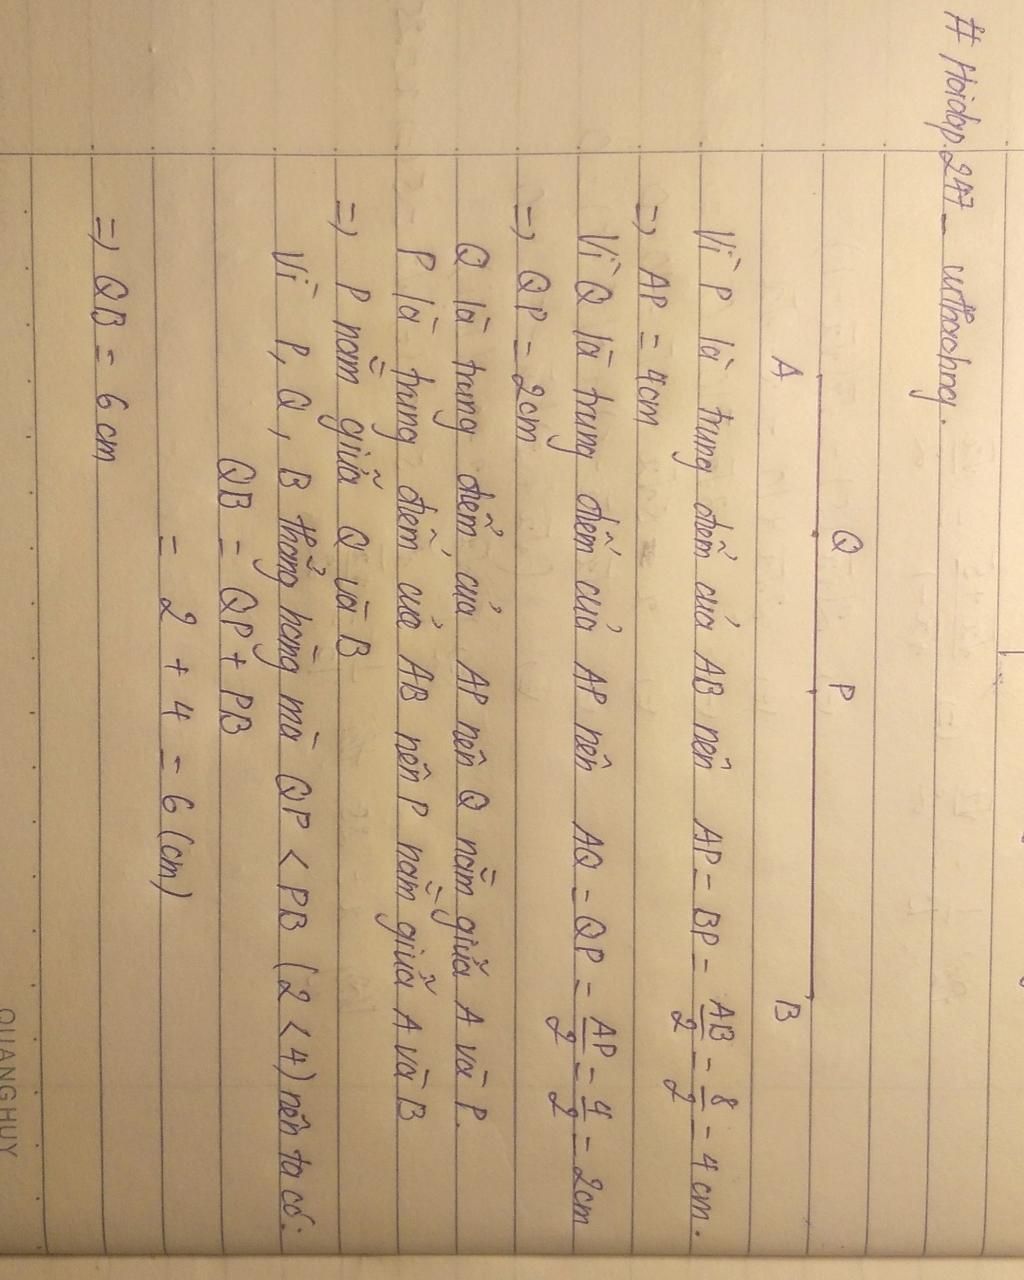 # Hoidap.247_
A Q P B
Vì P là trung điểm của AB nên AP = BP = AB/2 = 8/2 = 4 cm.
=> AP = 4cm
Vì Q là trung điểm của AP nên AQ = QP = AP/2 = 4/2 = 2cm
=> QP = 2cm
Q là trung điểm của AP nên Q nằm giữa A và P.
P là trung điểm của AB nên P nằm giữa A và B
=> P nằm giữa Q và B
Vì P, Q, B thẳng hàng mà QP < PB (2 < 4) nên ta có:
QB = QP + PB
= 2 + 4 = 6 (cm)
=> QB = 6 cm
QUANGHUY